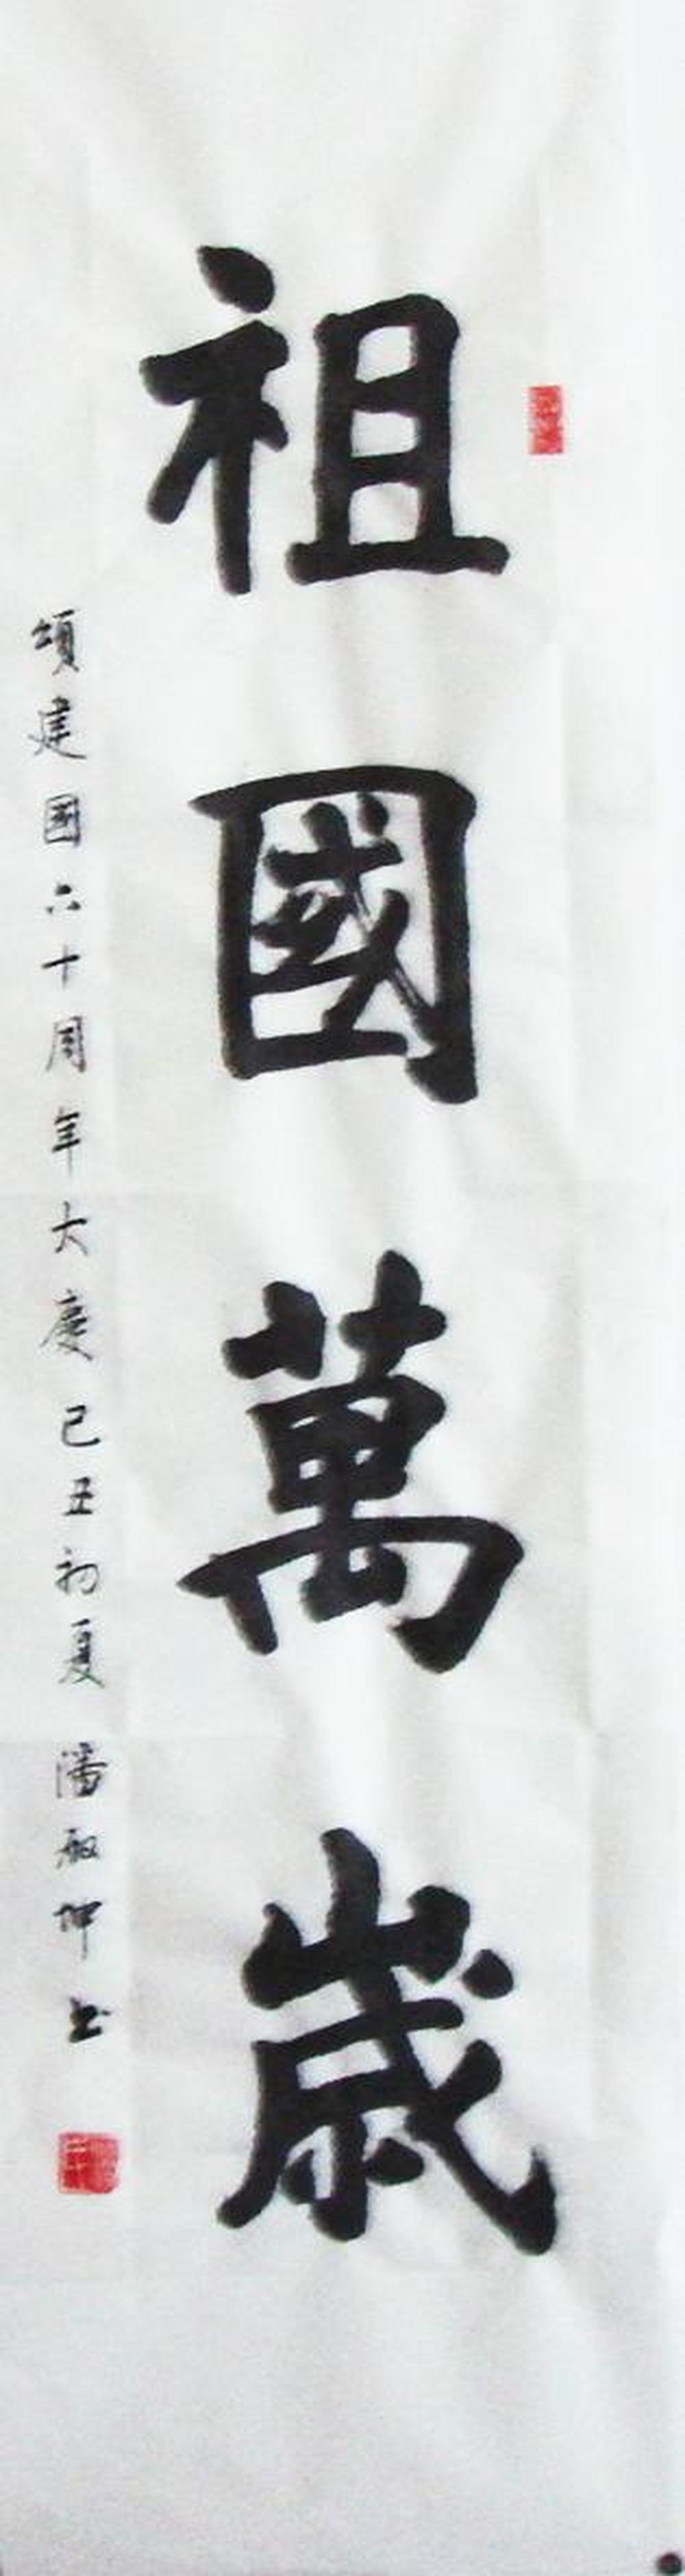 祖國萬歲
頌建國六十周年大慶己丑初夏潘敏坤書